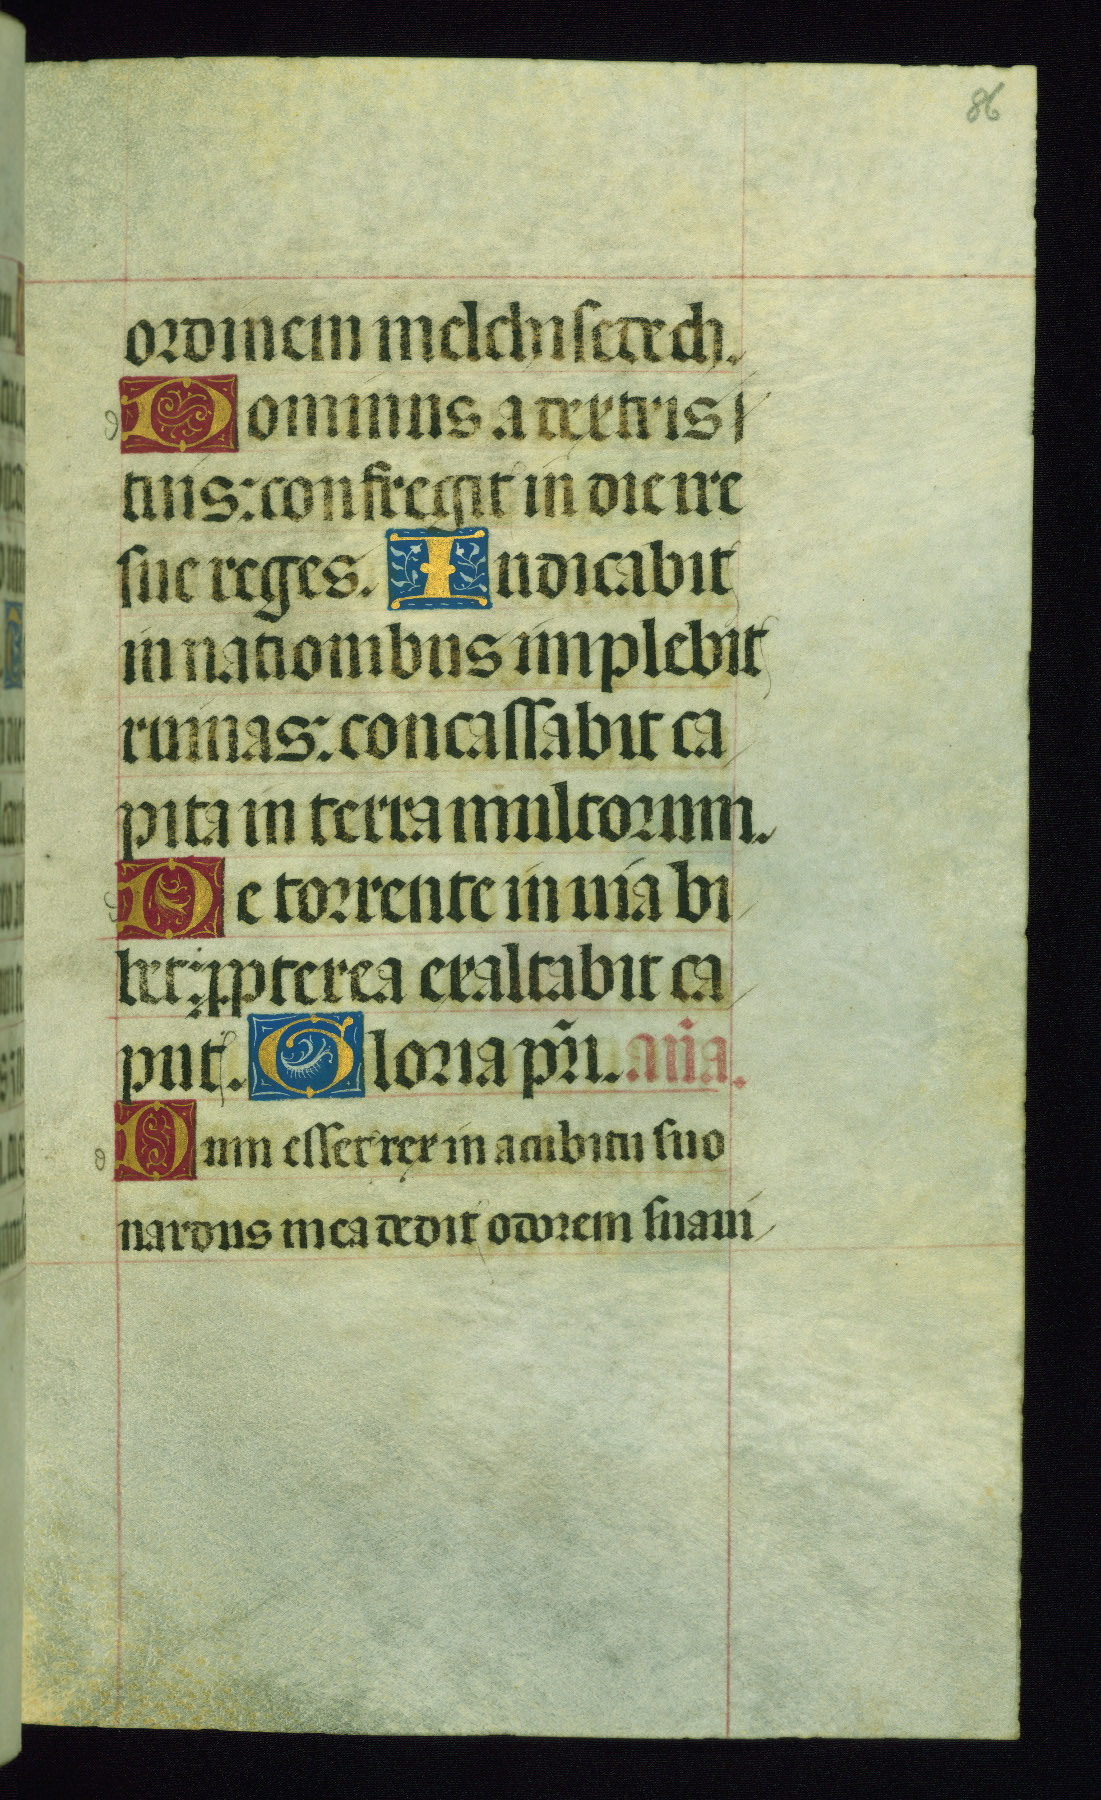 86
ordinem melchisedech.
Dominus a dextris
tuis: confregit in die ire
sue reges. Iudicabit
in nationibus implebit
ruinas: concassabit ca
pita in terra multorum.
De torrente in uia bi
bet: ꝓpterea exaltabit ca
put. Gloria pr̃i. aña.
Dum esset rex in acubitu suo
nardus mea dedit odorem suaui